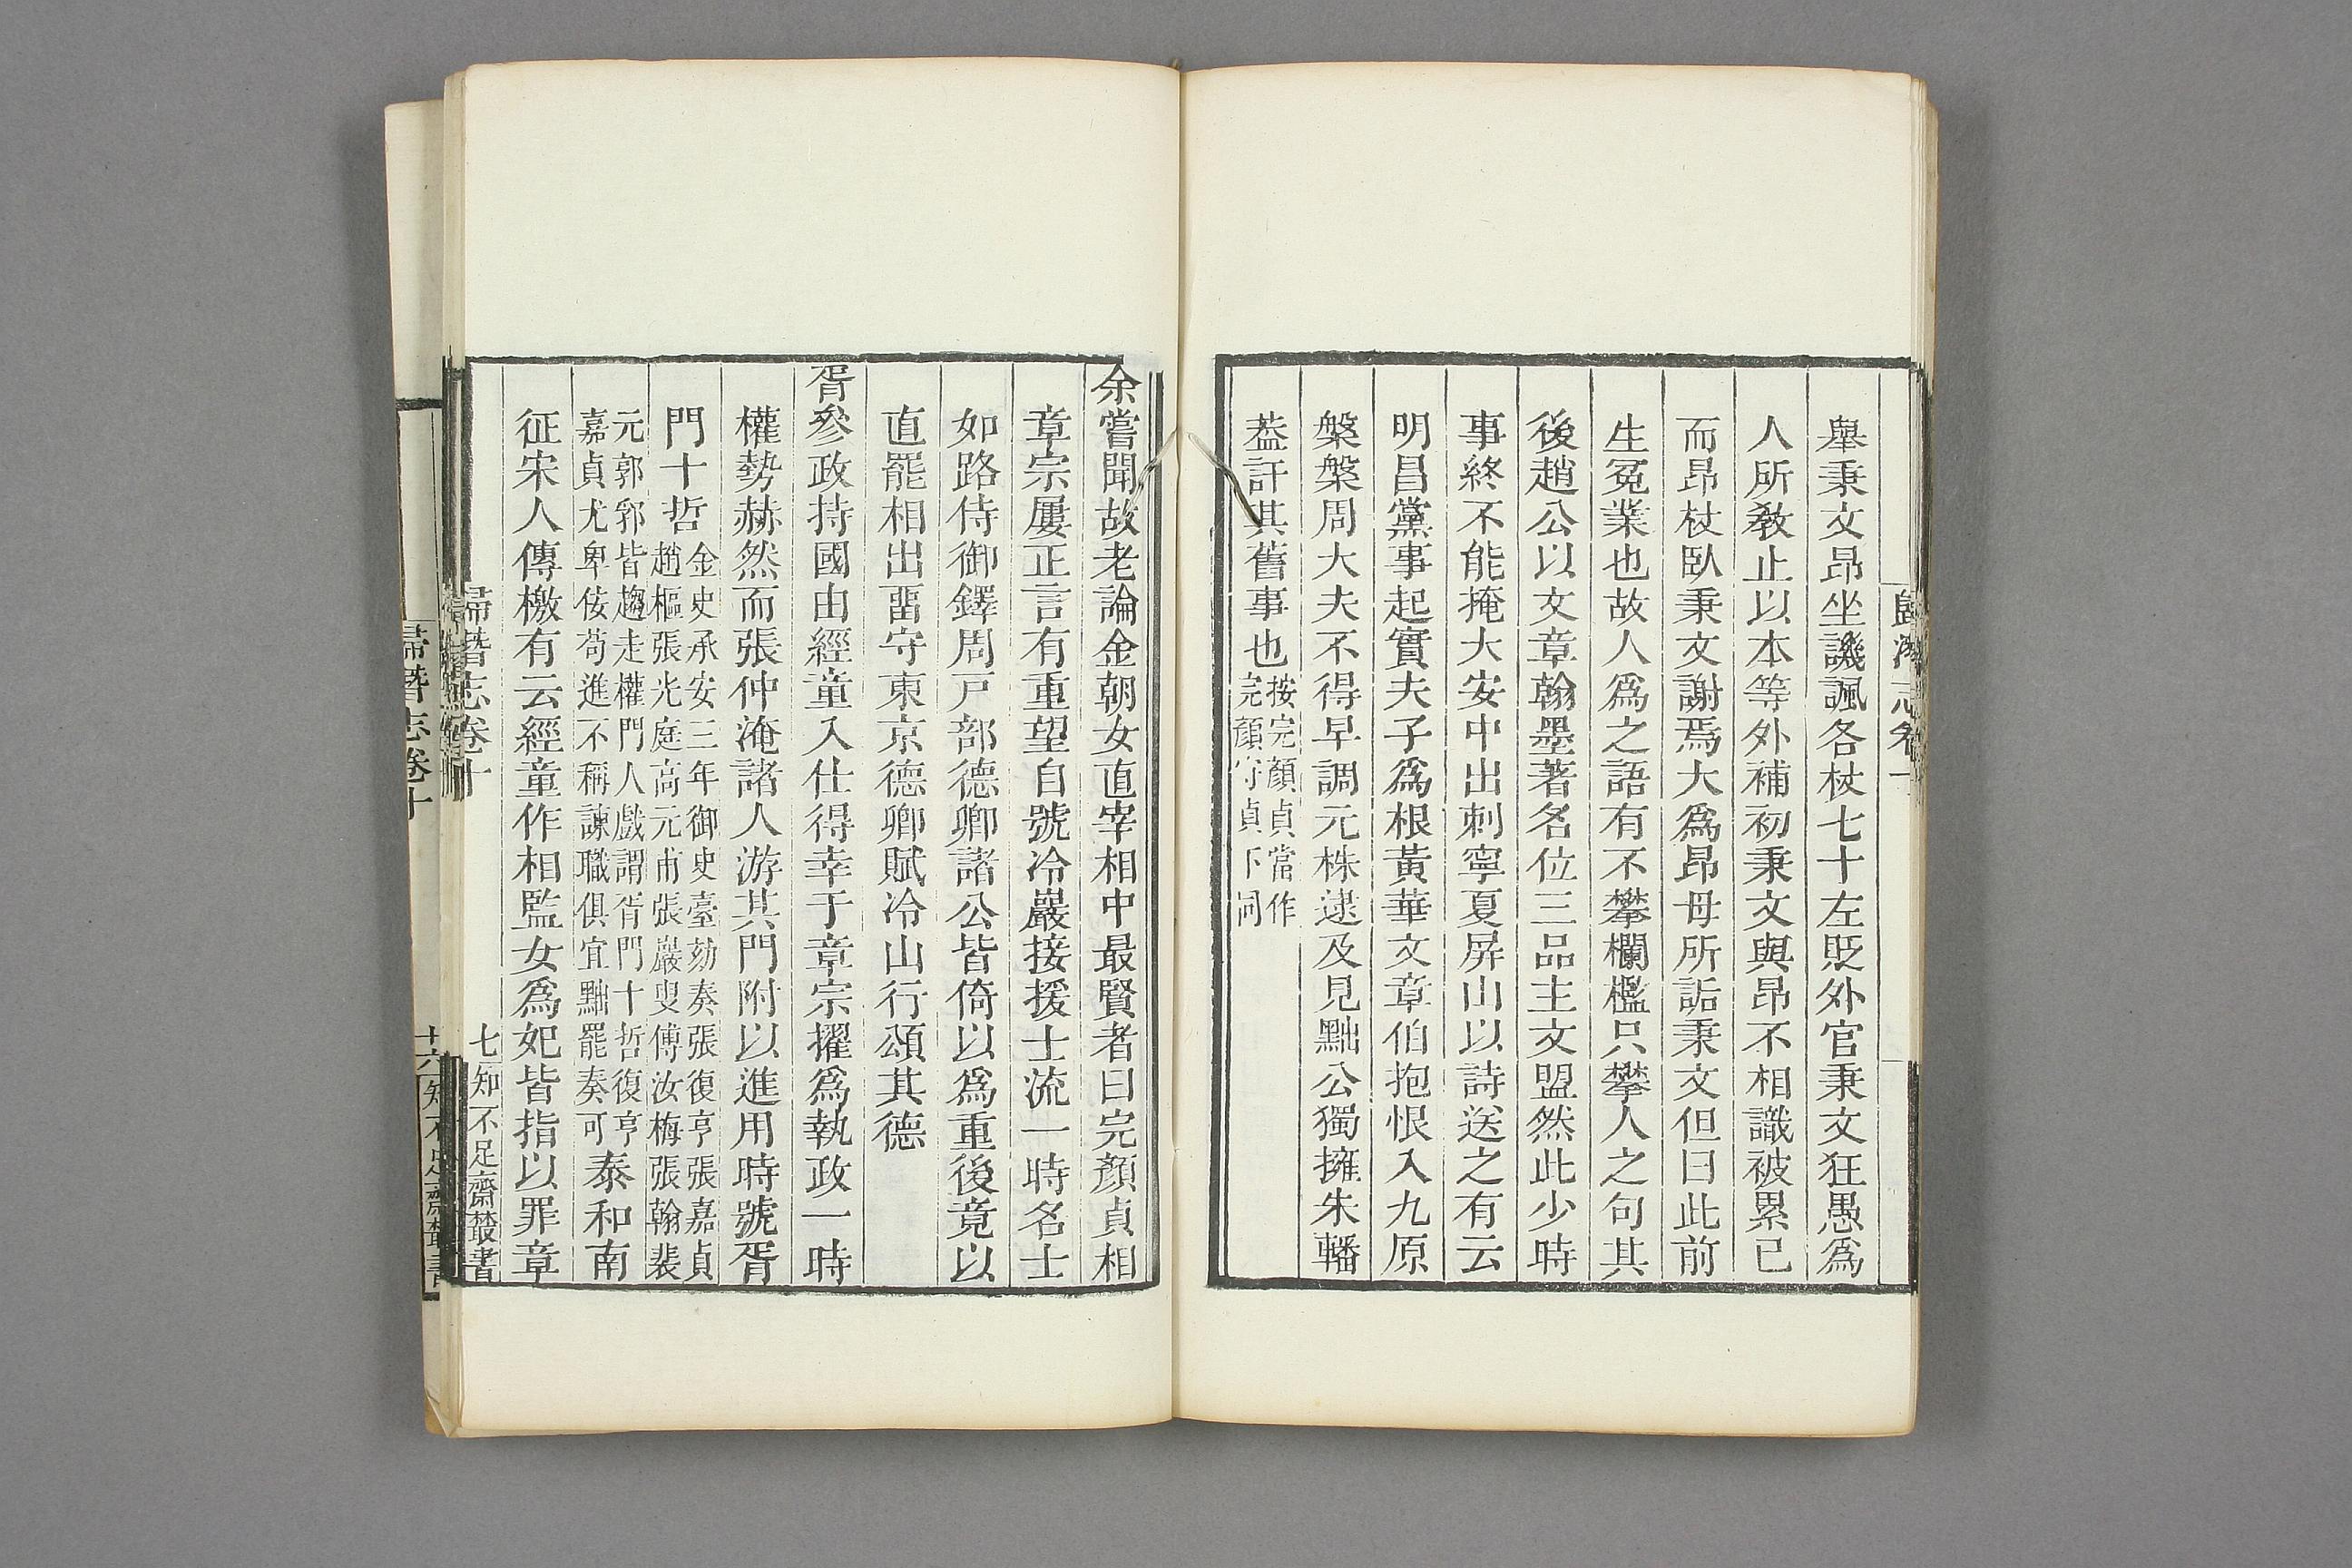 舉秉文昂坐譏諷各杖七十左貶外官秉文狂愚爲
人所敎止以本等外補初秉文與昂不相識被累已
而昂杖臥秉文謝焉大爲昂母所詬秉文但曰此前
生冤業也故人爲之語有不攀欄檻只攀人之句其
後趙公以文章翰墨著名位三品主文盟然此少時
事終不能掩大安中出刺寧夏屏山以詩送之有云
明昌黨事起實夫子爲根黃華文章伯抱恨入九原
槃槃周大夫不得早調元株逮及見黜公獨擁朱轓
葢訐其舊事也
按完顏貞當作
完顏守貞下同
余嘗聞故老論金朝女直宰相中最賢者曰完顏貞相
章宗屢正言有重望自號冷巖接援士流一時名士
如路侍御鐸周戸部德卿諸公皆倚以爲重後竟以
直罷相出畱守東京德卿賦冷山行頌其德
胥參政持國由經童入仕得幸于章宗擢爲執政一時
權勢赫然而張仲淹諸人游其門附以進用時號胥
門十哲
金史承安三年御史臺劾奏張復亨張嘉貞
趙樞張光庭高元甫張巖叟傅汝梅張翰裴
元郭郛皆趨走權門人戲謂胥門十哲復亨
嘉貞尤卑佞苟進不稱諫職俱宜黜罷奏可
泰和南
征宋人傳檄有云經童作相監女爲妃皆指以罪章
歸潛志卷十
七
知不足齋叢書
歸潛志卷十
十六